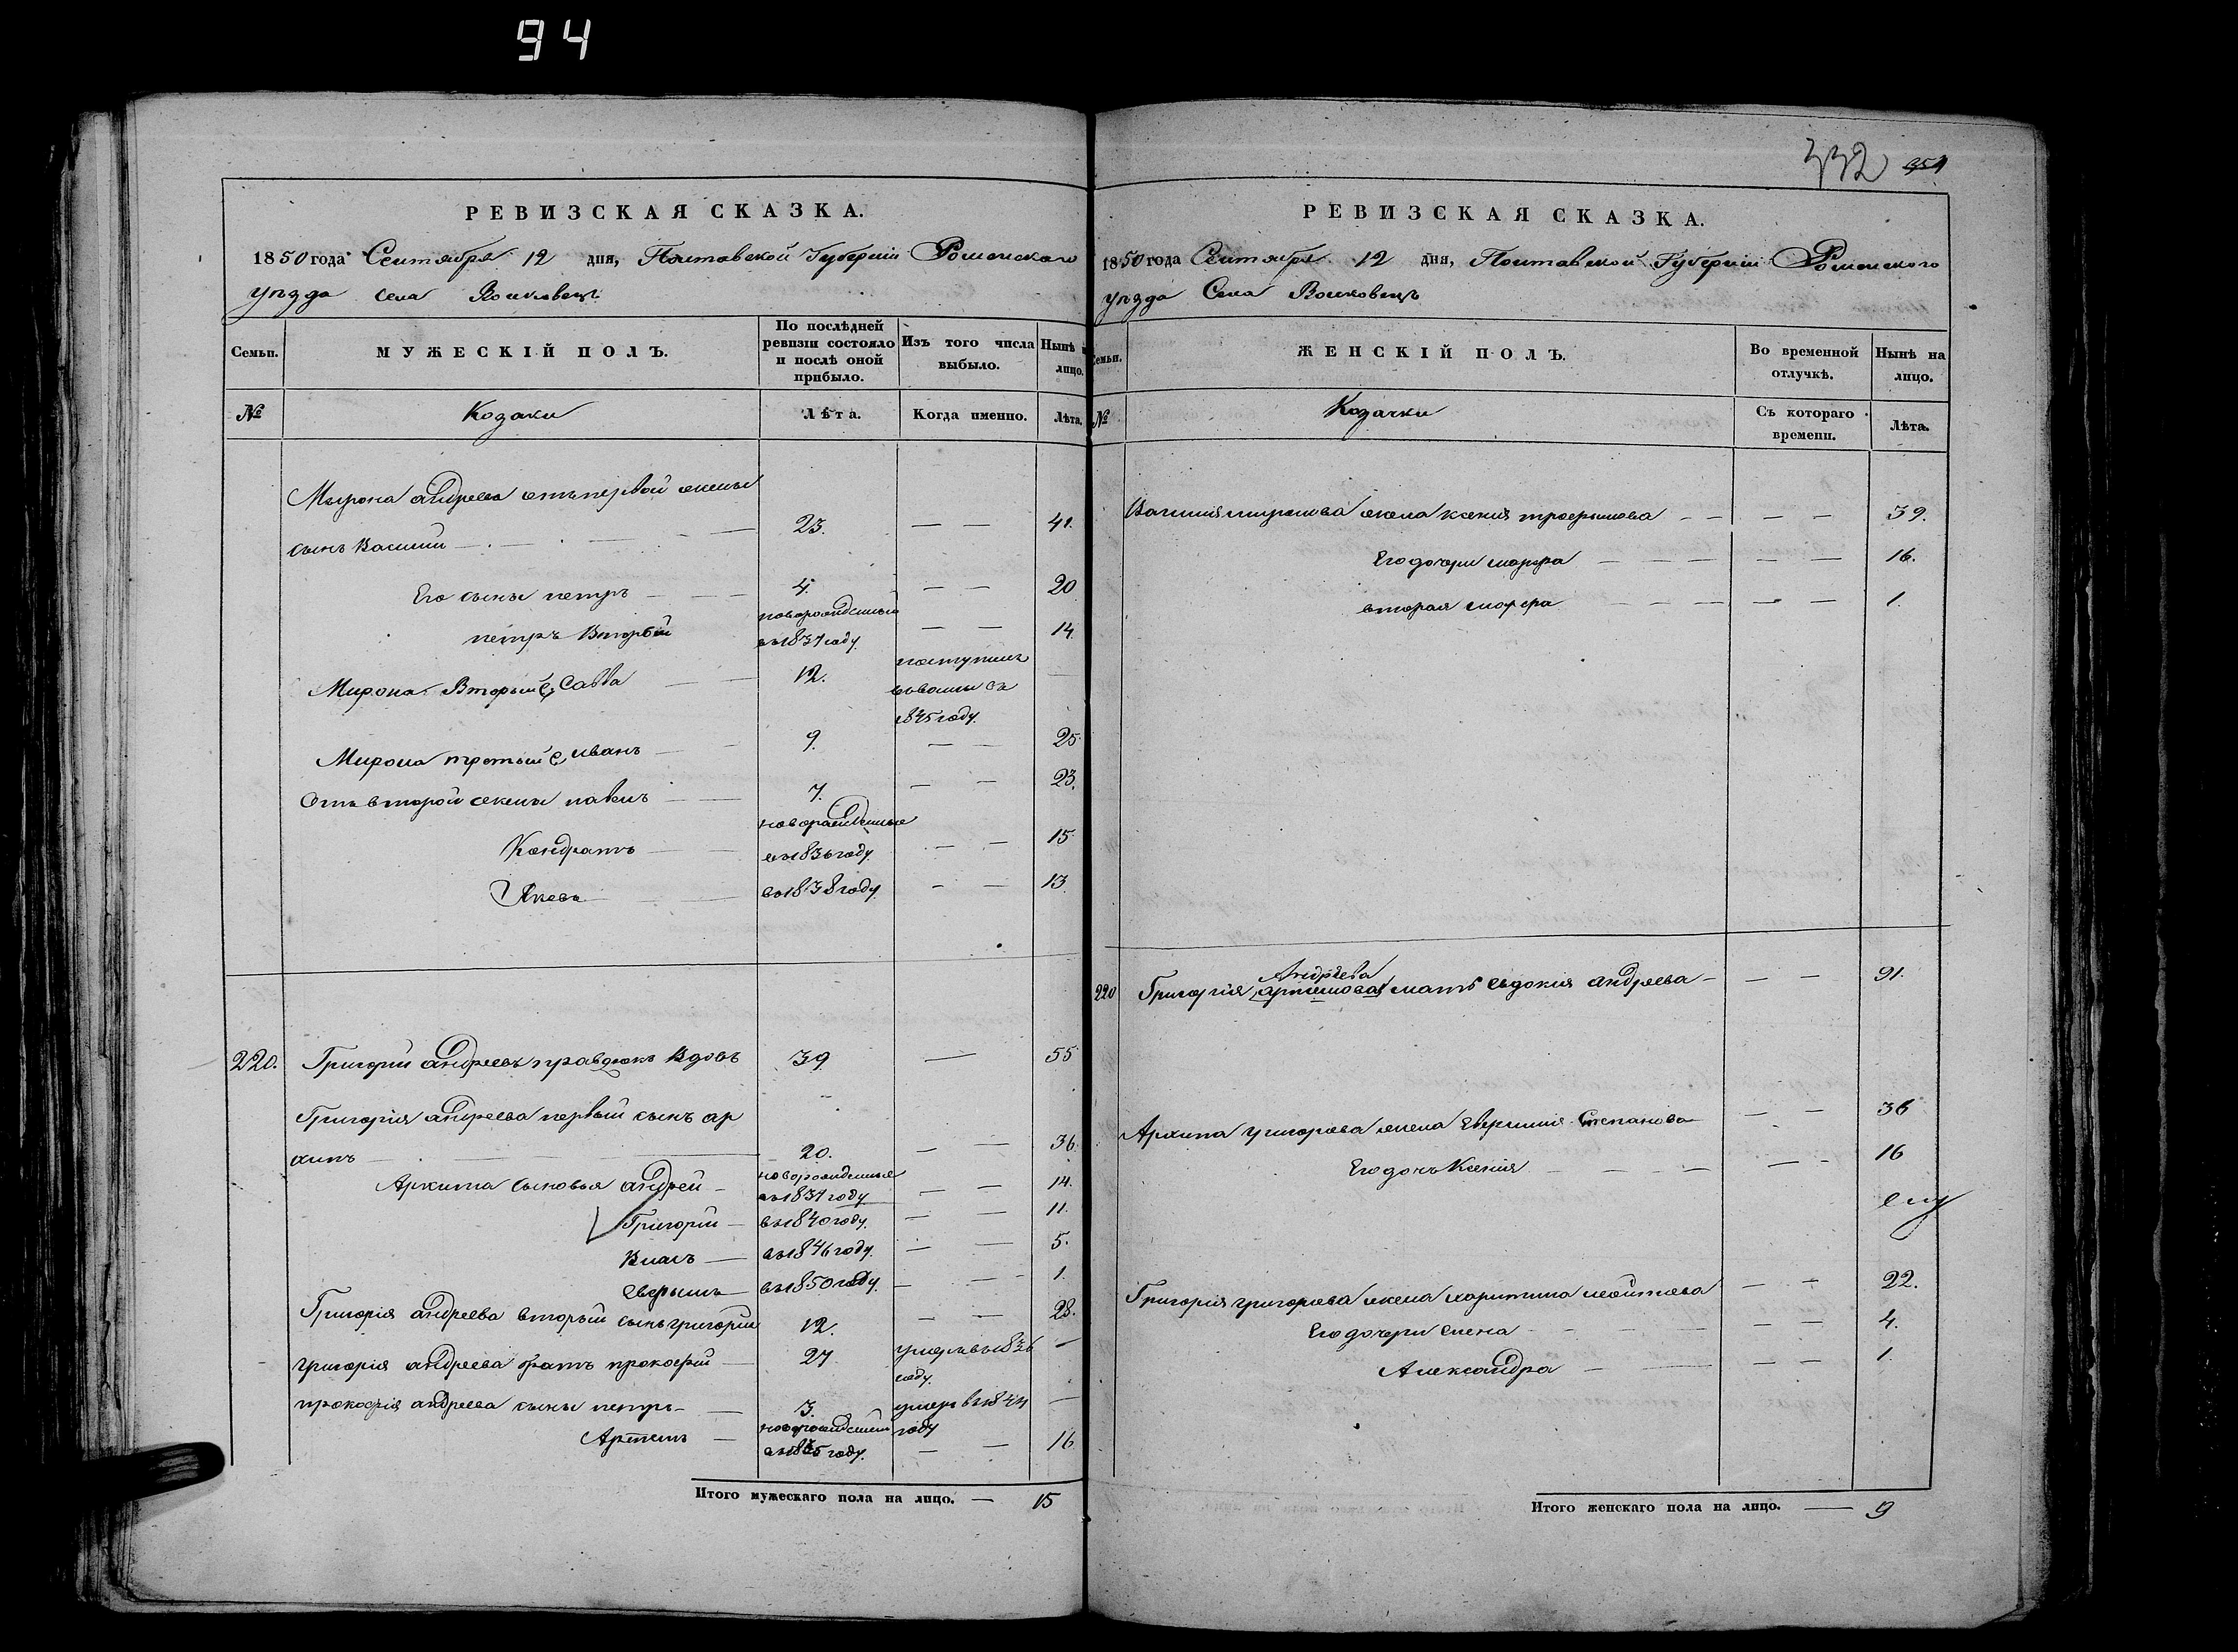 94
332 351
РЕВИЗСКАЯ СКАЗКА.
1850 года Сентября 12 дня, Полтавской Губерніи Роменского
уѣзда села Волковецъ
Семьи. МУЖЕСКІЙ ПОЛЪ. По послѣдней ревизіи состояло и послѣ оной прибыло. Изъ того числа выбыло. Нынѣ на лицо.
№ Козаки Лѣта. Когда именно. Лѣта.
Мирона андреева отъ первой жены
сынъ Василий 23. — — 41.
Его сыны петръ 4. — — 20
новорожденный
петръ Вторый въ 1837 году — — 14
Мирона Вторый с. Савва 12. поступилъ
1845 году.
Мирона третий с. иванъ 9. — — 25
Отъ второй жены павелъ 7. — — 23.
новорожденные
Кондратъ въ 1836 году — — 15
Яковъ въ 1838 году — — 13.
220. Григорий андреевъ правдюкъ Вдовъ 39 — 55
Григорія андреева первый сынъ ар
хипъ 20. — — 36.
новорожденные
Архипа сыновья андрей въ 1837 году — — 14.
Григорий въ 1840 году. — — 11.
Власъ въ 1846 году. — — 5.
въ 1850 году. — — 1.
Григорія андреева вторый сынъ григорий 12. — — 28.
григорія андреева братъ прокофий 27 умеръ въ 1836 —
году.
прокофія андреева сыны петръ 3. умеръ въ 1844 —
новорожденный году
Артемъ въ 1835 году. — — 16
Итого мужескаго пола на лицо. — 15
РЕВИЗСКАЯ СКАЗКА.
1850 года Сентября 12 дня, Полтавской Губерніи Роменского
уѣзда Села Волковецъ
Семьи. ЖЕНСКІЙ ПОЛЪ. Во временной отлучкѣ. Нынѣ на лицо.
№ Козачки Съ котораго времени. Лѣта.
Василия миронова жена ксения трофимова — — 39.
Его дочери марфа — — 16.
вторая марфа — — 1.
Андрѣева
220 Григорія артемова мать евдокия андреева — — 91.
Архипа григорова жена Евфимия Степанова — — 36
Его дочь Ксенія — — 16
Григорія григорова жена харитина — — 22.
Его дочери елена — — 4.
Александра — — 1.
Итого женскаго пола на лицо. — 9